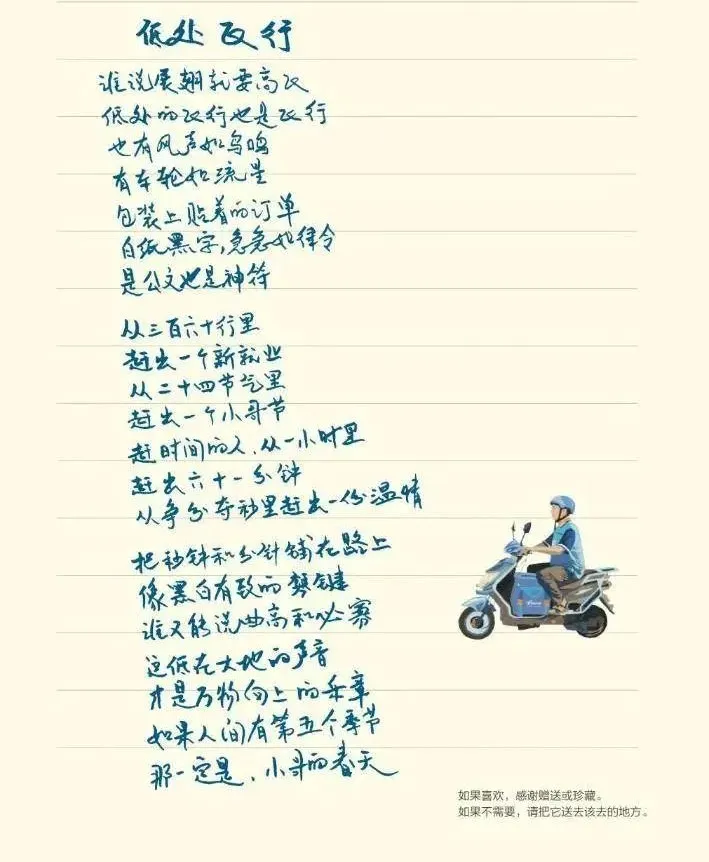 低处飞行
谁说展翅就要高飞
低处的飞行也是飞行
也有风声如鸟鸣
有车轮如流星
包装上贴着的订单
白纸黑字,急急如律令
是公文也是神符
从三百六十行里
赶出一个新就业
从二十四节气里
赶出一个小哥节
赶时间的人、从一小时里
赶出六十一分钟
从争分夺秒里赶出一份温情
把秒针和分针铺在路上
像黑白有致的琴键
谁又能说曲高和必寡
这低在大地的声音
才是万物向上的乐章
如果人间有第五个季节
那一定是、小哥的春天
如果喜欢，感谢赠送或珍藏。
如果不需要，请把它送去该去的地方。